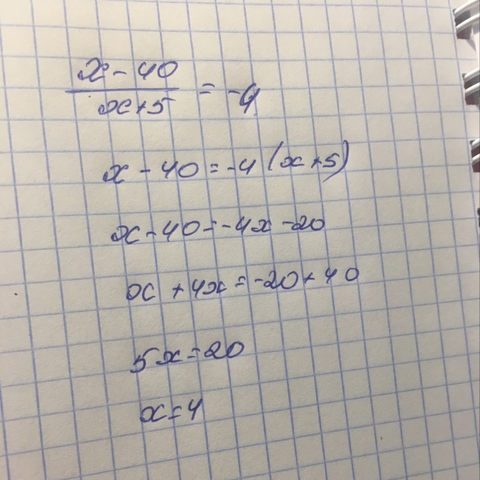 x - 40
x + 5 = -4
x - 40 = -4 (x + 5)
x - 40 = -4x - 20
x + 4x = -20 + 40
5x = 20
x = 4